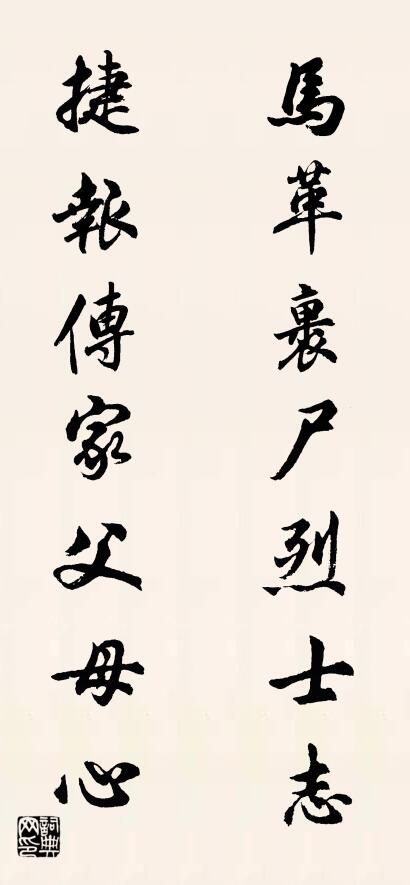 馬革裹尸烈士志
捷報傳家父母心
詞典網印